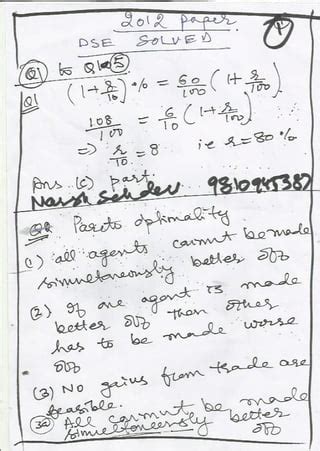 2012 paper
DSE SOLVED
Q1 to Q15
Q1 (1+r/10)% = 60/100 (1+r/100)
108/100 = 6/10 (1+r/100)
=> r/10 = 8 i.e r=80%
Ans (c) part.
Naresh Sehdev 9310945387
Q2 Pareto optimality
(1) all agents cannot be made
simultaneously better off
(2) If one agent is made
better off than other
has to be made worse
off
(3) No gains from trade are
feasible.
3a) All cannot be made
simultaneously better
off